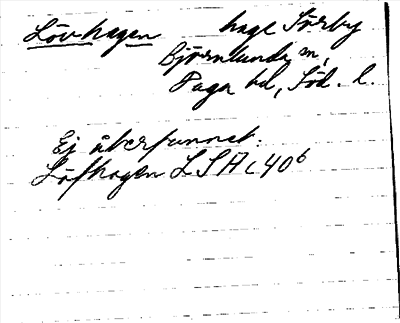 Lövhagen hage Sörby
Björnlunda sn,
Daga hd, Söd. l.
Ej återfunnet.
Löfhagen LSA C40⁶